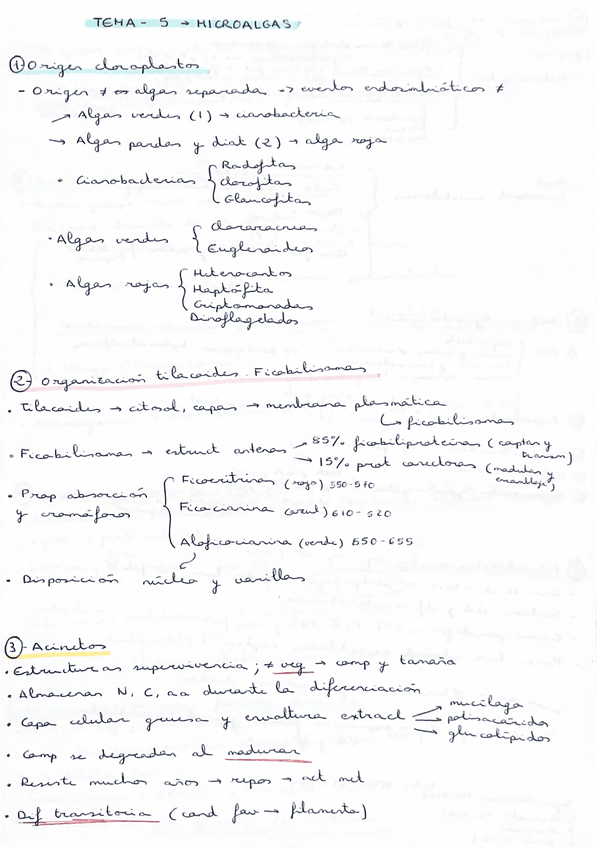 TEMA - 5 → MICROALGAS
① Origen cloroplastos
- Origen ≠ ∞ algas separada → eventos endosimbióticos ≠
→ Algas verdes (1) → cianobacteria
→ Algas pardas y diat (2) → alga roja
• Cianobacterias { Rodofitas
Clorofitas
Glaucofitas
• Algas verdes { Cloraracneas
Eugleroideos
• Algas rojas { Heterocontos
Haptófita
Criptomonadas
Dinoflagelados
②- Organización tilacoides. Ficobilisomas
• Tilacoides → citosol, capas → membrana plasmática
↳ ficobilisomas
• Ficobilisomas → estruct antenas → 85% ficobiliproteínas (captan y transm)
→ 15% prot conectoras (maduran y ensamblaje)
• Prop absorción y cromóforos { Ficoeritrina (rojo) 550-570
Ficocianina (azul) 610-520
Aloficocianina (verde) 650-655
• Disposición núcleo y varillas
③- Acinetos
• Estructuras supervivencia; ≠ veg → comp y tamaño
• Almacenan N, C, aa durante la diferenciación
• Capa celular gruesa y envoltura extracl → mucílago
→ polisacáridos
→ glucolípidos
• Comp se degradan al madurar
• Resiste muchos años → repos → act met
• Dif transitoria (cond fav → filamento)